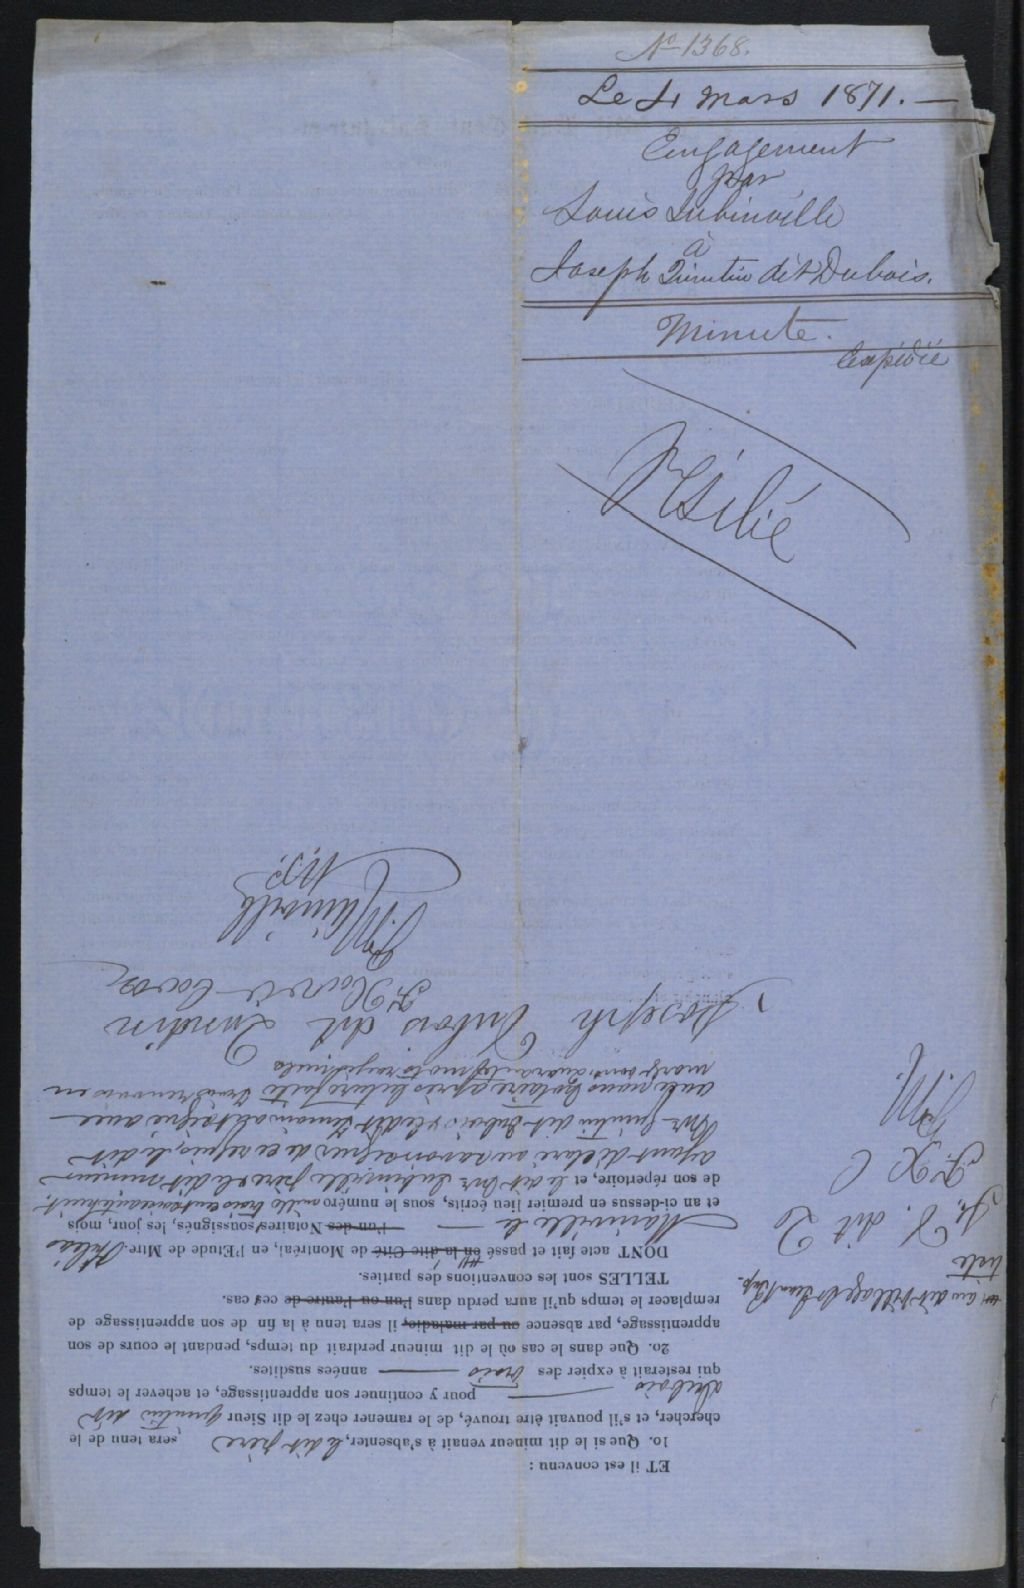 No 1368.
Le 4 Mars 1871. —
Engagement
par
Louis Lubinville
à
Joseph Quintin dit Dubois.
Minute.
Expédié
Résilié
ET il est convenu :
1o. Que si le dit mineur venait à s'absenter, le dit frère sera tenu de le
chercher, et s'il pouvait être trouvé, de le ramener chez le dit Sieur Quintin dit
Dubois pour y continuer son apprentissage, et achever le temps
qui resterait à expirer des trois années susdites.
2o. Que dans le cas où le dit mineur perdrait du temps, pendant le cours de son
apprentissage, par absence ou par maladie, il sera tenu à la fin de son apprentissage de
remplacer le temps qu'il aura perdu dans l'un ou l'autre de ces cas.
TELLES sont les conventions des parties.
DONT acte fait et passé en la dite Cité de Montréal, en l'Etude de Mtre.
l'un des Notaires soussignés, les jour, mois
et an ci-dessus en premier lieu écrits, sous le numéro mille trois cent soixante huit,
de son répertoire, et le dit Lubinville frère et le dit mineur
ayant déclaré ne savoir signer de ce requis, le dit
Quintin dit Dubois et le dit témoin ont signé avec
nous Notaire après lecture faite
Joseph Dubois dit Quindin
au dit Village St Jean Bte
J. D. dit Q
F. X. C